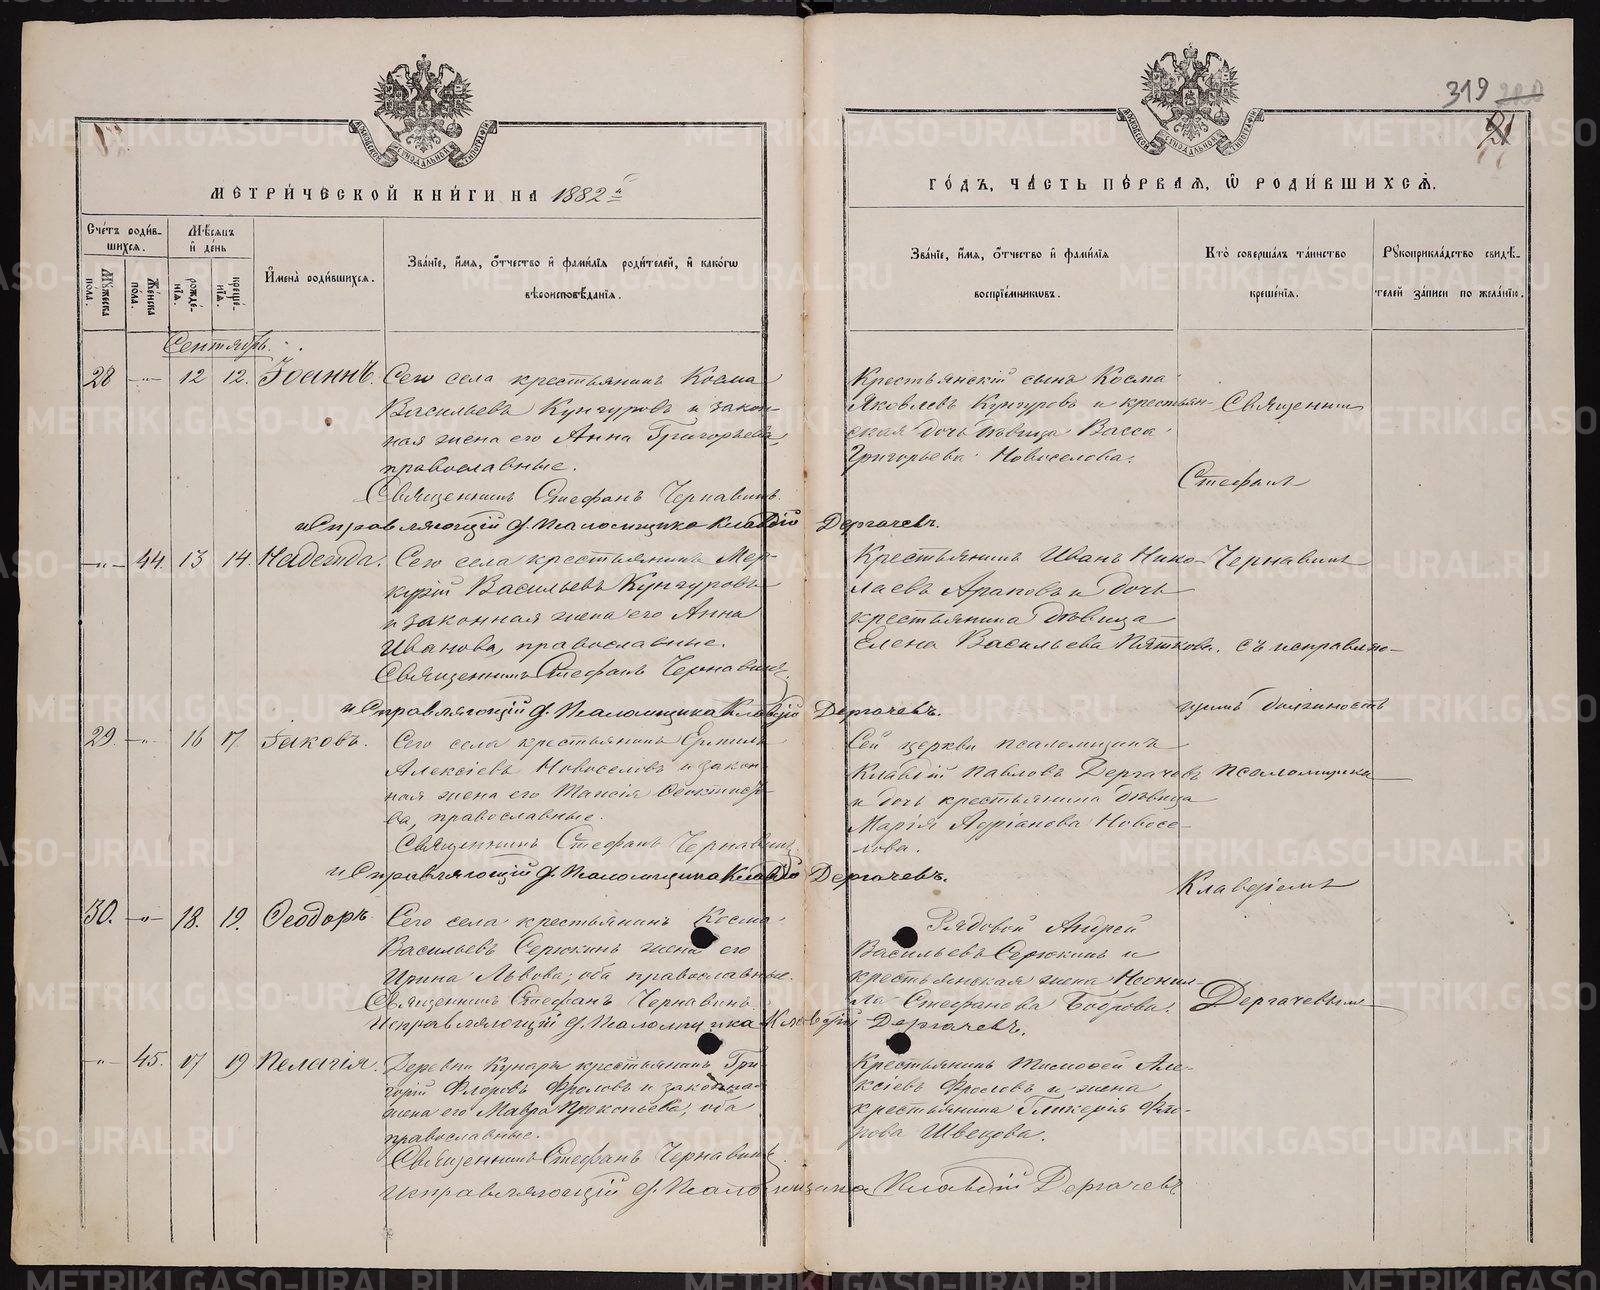 319
21
МЕТРИ́ЧЕСКОЙ КНИ́ГИ НА 1882 й
ГО́ДЪ, ЧА́СТЬ ПЕ́РВАЯ, Ѡ РОДИ́ВШИХСЯ.
Сче́тъ роди́в-
шихся.
Мѣсяцъ
и́ де́нь
Му́жеска
пола.
Же́нска
пола.
рожде́-
нїѧ.
креще́-
нїѧ.
И҆мена̀ роди́вшихся.
Зва́нїе, и҆́мѧ, ѻ҆́тчество и҆ фами́лїѧ роди́телей, и҆ како́гѡ
вѣроисповѣ́данїѧ.
Зва́нїе, и҆́мѧ, ѻ҆́тчество и҆ фами́лїѧ
воспрїе́мникѡвъ.
Кто̀ соверша́лъ та́инство
креще́нїѧ.
Рꙋкоприкла́дство свидѣ́-
телей за́писи по жела́нїю.
Сентябрь.
28 -"- 12 12. Іоаннъ. Сего села крестьянинъ Косма
Васильевъ Кунгуровъ и закон-
ная жена его Анна Григорьева,
православные.
Священникъ Стефанъ Чернавинъ
Исправляющій д. Псаломщика Клавдій Дергачевъ.
Крестьянскій сынъ Косма
Яковлевъ Кунгуровъ и крестьян-
ская дочь дѣвица Васса
Григорьева Новоселова.
Священник
Стефан
-"- 44. 13 14. Надежда. Сего села крестьянинъ Мер-
курій Васильевъ Кунгуровъ
и законная жена его Анна
Иванова, православные.
Священникъ Стефанъ Чернавинъ
Исправляющій д. Псаломщика Клавдій Дергачевъ.
Крестьянинъ Иванъ Нико-
лаевъ Араповъ и дочь
крестьянина дѣвица
Елена Васильева Пяткова.
Чернавинъ
съ исправляю-
щимъ должность
29. -"- 16 17. Іаковъ. Сего села крестьянинъ Ермилъ
Алексіевъ Новоселовъ и закон-
ная жена его Таисія Ѳеоктисто-
ва, православные.
Священникъ Стефанъ Чернавинъ
Исправляющій д. Псаломщика Клавдій Дергачевъ.
Сей церкви псаломщикъ
Клавдій Павловъ Дергачевъ
и дочь крестьянина дѣвица
Марія Адріанова Новосе-
лова.
псаломщика
Клавдіемъ
30. -"- 18. 19. Ѳеодоръ. Сего села крестьянинъ Косма
Васильевъ Серюкинъ жена его
Ирина Львова, оба православные.
Священникъ Стефанъ Чернавинъ
Исправляющій д. Псаломщика Клавдій Дергачевъ.
Рядовой Андрей
Васильевъ Серюкинъ и
крестьянская жена Неонил-
ла Стефанова Боброва.
Дергачевымъ
-"- 45. 17 19 Пелагія. Деревни Кунары крестьянинъ Гри-
горій Флоровъ Фроловъ и законная
жена его Мавра Прокопьева, оба
православные.
Священникъ Стефанъ Чернавинъ
Исправляющій д. Псаломщика Клавдій Дергачевъ
Крестьянинъ Тимоѳей Але-
ксіевъ Фроловъ и жена
крестьянина Гликерія Фло-
рова Швецова.